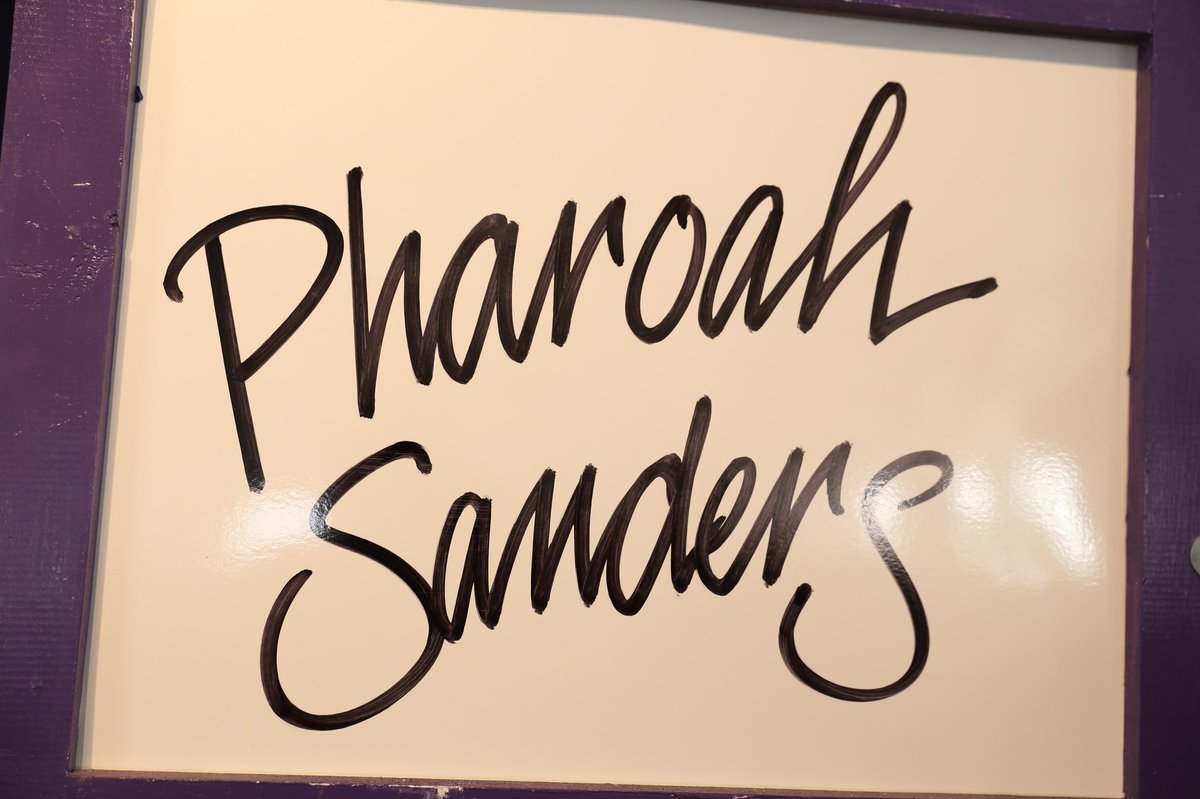 Pharoah
Sanders